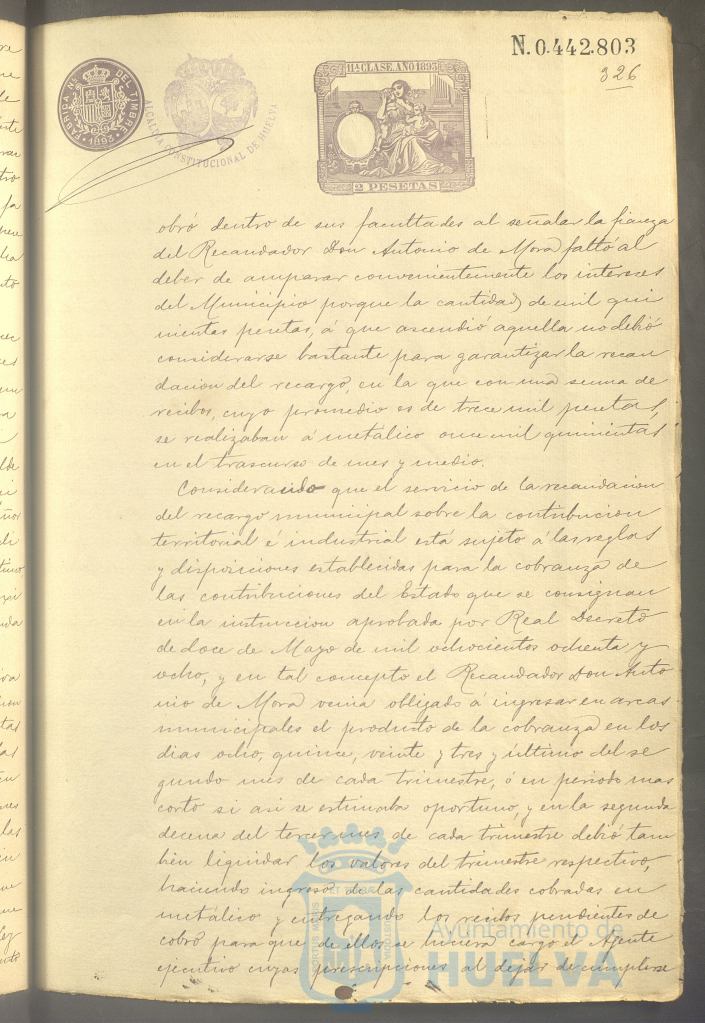 N. 0.442.803
326
FABRICA NAL. DEL TIMBRE
1893
ALCALDIA CONSTITUCIONAL DE HUELVA
11ª CLASE. AÑO 1893
2 PESETAS
obró dentro de sus facultades al señalar la fianza
del Recaudador Don Antonio de Mora faltó al
deber de amparar convenientemente los intereses
del Municipio porque la cantidad de mil qui
nientas pesetas, á que ascendió aquella no debió
considerarse bastante para garantizar la recau
dacion del recargo, en la que con una suma de
recibos, cuyo promedio es de trece mil pesetas,
se realizaban á metálico once mil quinientas
en el trascurso de mes y medio.
Considerando que el servicio de la recaudacion
del recargo municipal sobre la contribucion
territorial é industrial está sujeto á las reglas
y disposiciones establecidas para la cobranza de
las contribuciones del Estado que se consignan
en la instruccion aprobada por Real Decreto
de doce de Mayo de mil ochocientos ochenta y
ocho, y en tal concepto el Recaudador Don Anto
nio de Mora venia obligado á ingresar en arcas
municipales el producto de la cobranza en los
dias ocho, quince, veinte y tres y último del se
gundo mes de cada trimestre, ó en periodo mas
corto si asi se estimaba oportuno, y en la segunda
decena del tercer mes de cada trimestre debió tam
bien liquidar los valores del trimestre respectivo,
haciendo ingreso de las cantidades cobradas en
metálico y entregando los recibos pendientes de
cobro para que de ellos se hiciera cargo el Agente
ejecutivo cuyas prescripciones al dejar de cumplirse
Ayuntamiento de
HUELVA